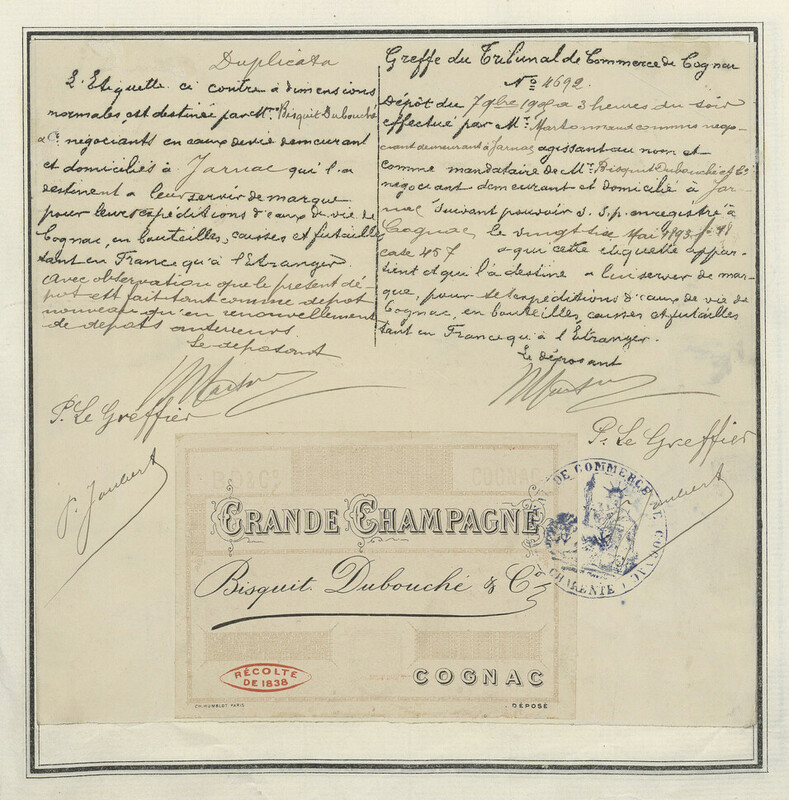 Duplicata
L'Etiquette ci contre à dimensions
normales est destinée par Mrs Bisquit Dubouché
& Cie négociants en eaux de vie demeurant
et domiciliés à Jarnac qui l'a
destinent a leur servir de marque
pour leurs expéditions d'eaux de vie de
Cognac, en bouteilles, caisses et futailles
tant en France qu'à l'Etranger
Avec observation que le present dé-
pôt est fait tant comme depot
nouveau qu'en renouvellement
de depots anterieurs
Le deposant
P. Le Greffier
P. Joubert
Greffe du Tribunal de Commerce de Cognac
No 4692.
Dépôt du 7 9bre à 3 heures du soir
effectué par Mr commis négo-
ciant demeurant à Jarnac agissant au nom et
comme mandataire de Mrs Bisquit Dubouché & Cie
négociant demeurant et domicilié à Jar-
nac suivant pouvoir S.S.p. enregistré à
Cognac le vingt six Mai 1893 fo 48
case 457 a qui cette etiquette appar-
tient et qui l'à destine a lui server de mar-
que, pour ses expéditions d'eaux de vie de
Cognac, en bouteilles, caisses et futailles
tant en France qu'à l'Etranger.
Le déposant
P. Le Greffier
Joubert
B.D & Co COGNAC
GRANDE CHAMPAGNE
Bisquit Dubouché & Co
RÉCOLTE
DE 1838
COGNAC
CH. HUMBLOT. PARIS
DÉPOSÉ
DE COMMERCE DE COGNAC
CHARENTE